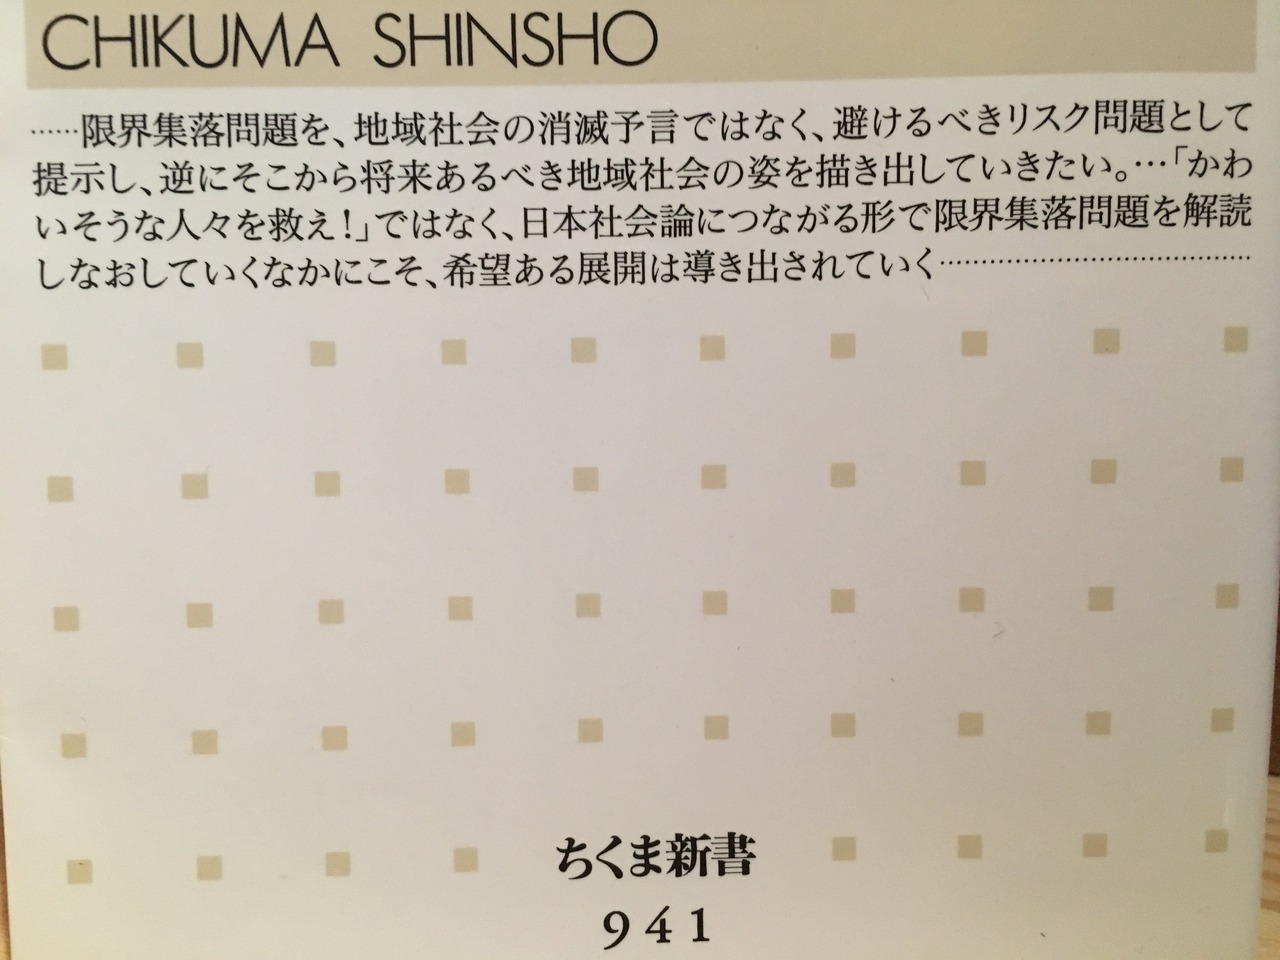 CHIKUMA SHINSHO
……限界集落問題を、地域社会の消滅予言ではなく、避けるべきリスク問題として
提示し、逆にそこから将来あるべき地域社会の姿を描き出していきたい。…「かわ
いそうな人々を救え!」ではなく、日本社会論につながる形で限界集落問題を解読
しなおしていくなかにこそ、希望ある展開は導き出されていく…………………………
ちくま新書
941